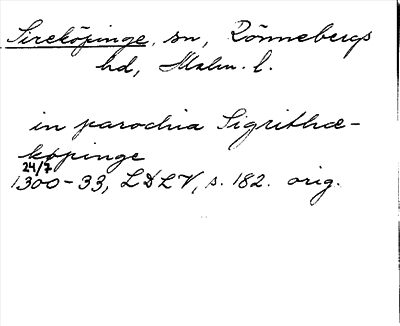 Sireköpinge, sn, Rönnebergs
hd, Malm. l.
in parochia Sigrithæ-
køpinge
24/7
1300-33, LDLV, s. 182. orig.